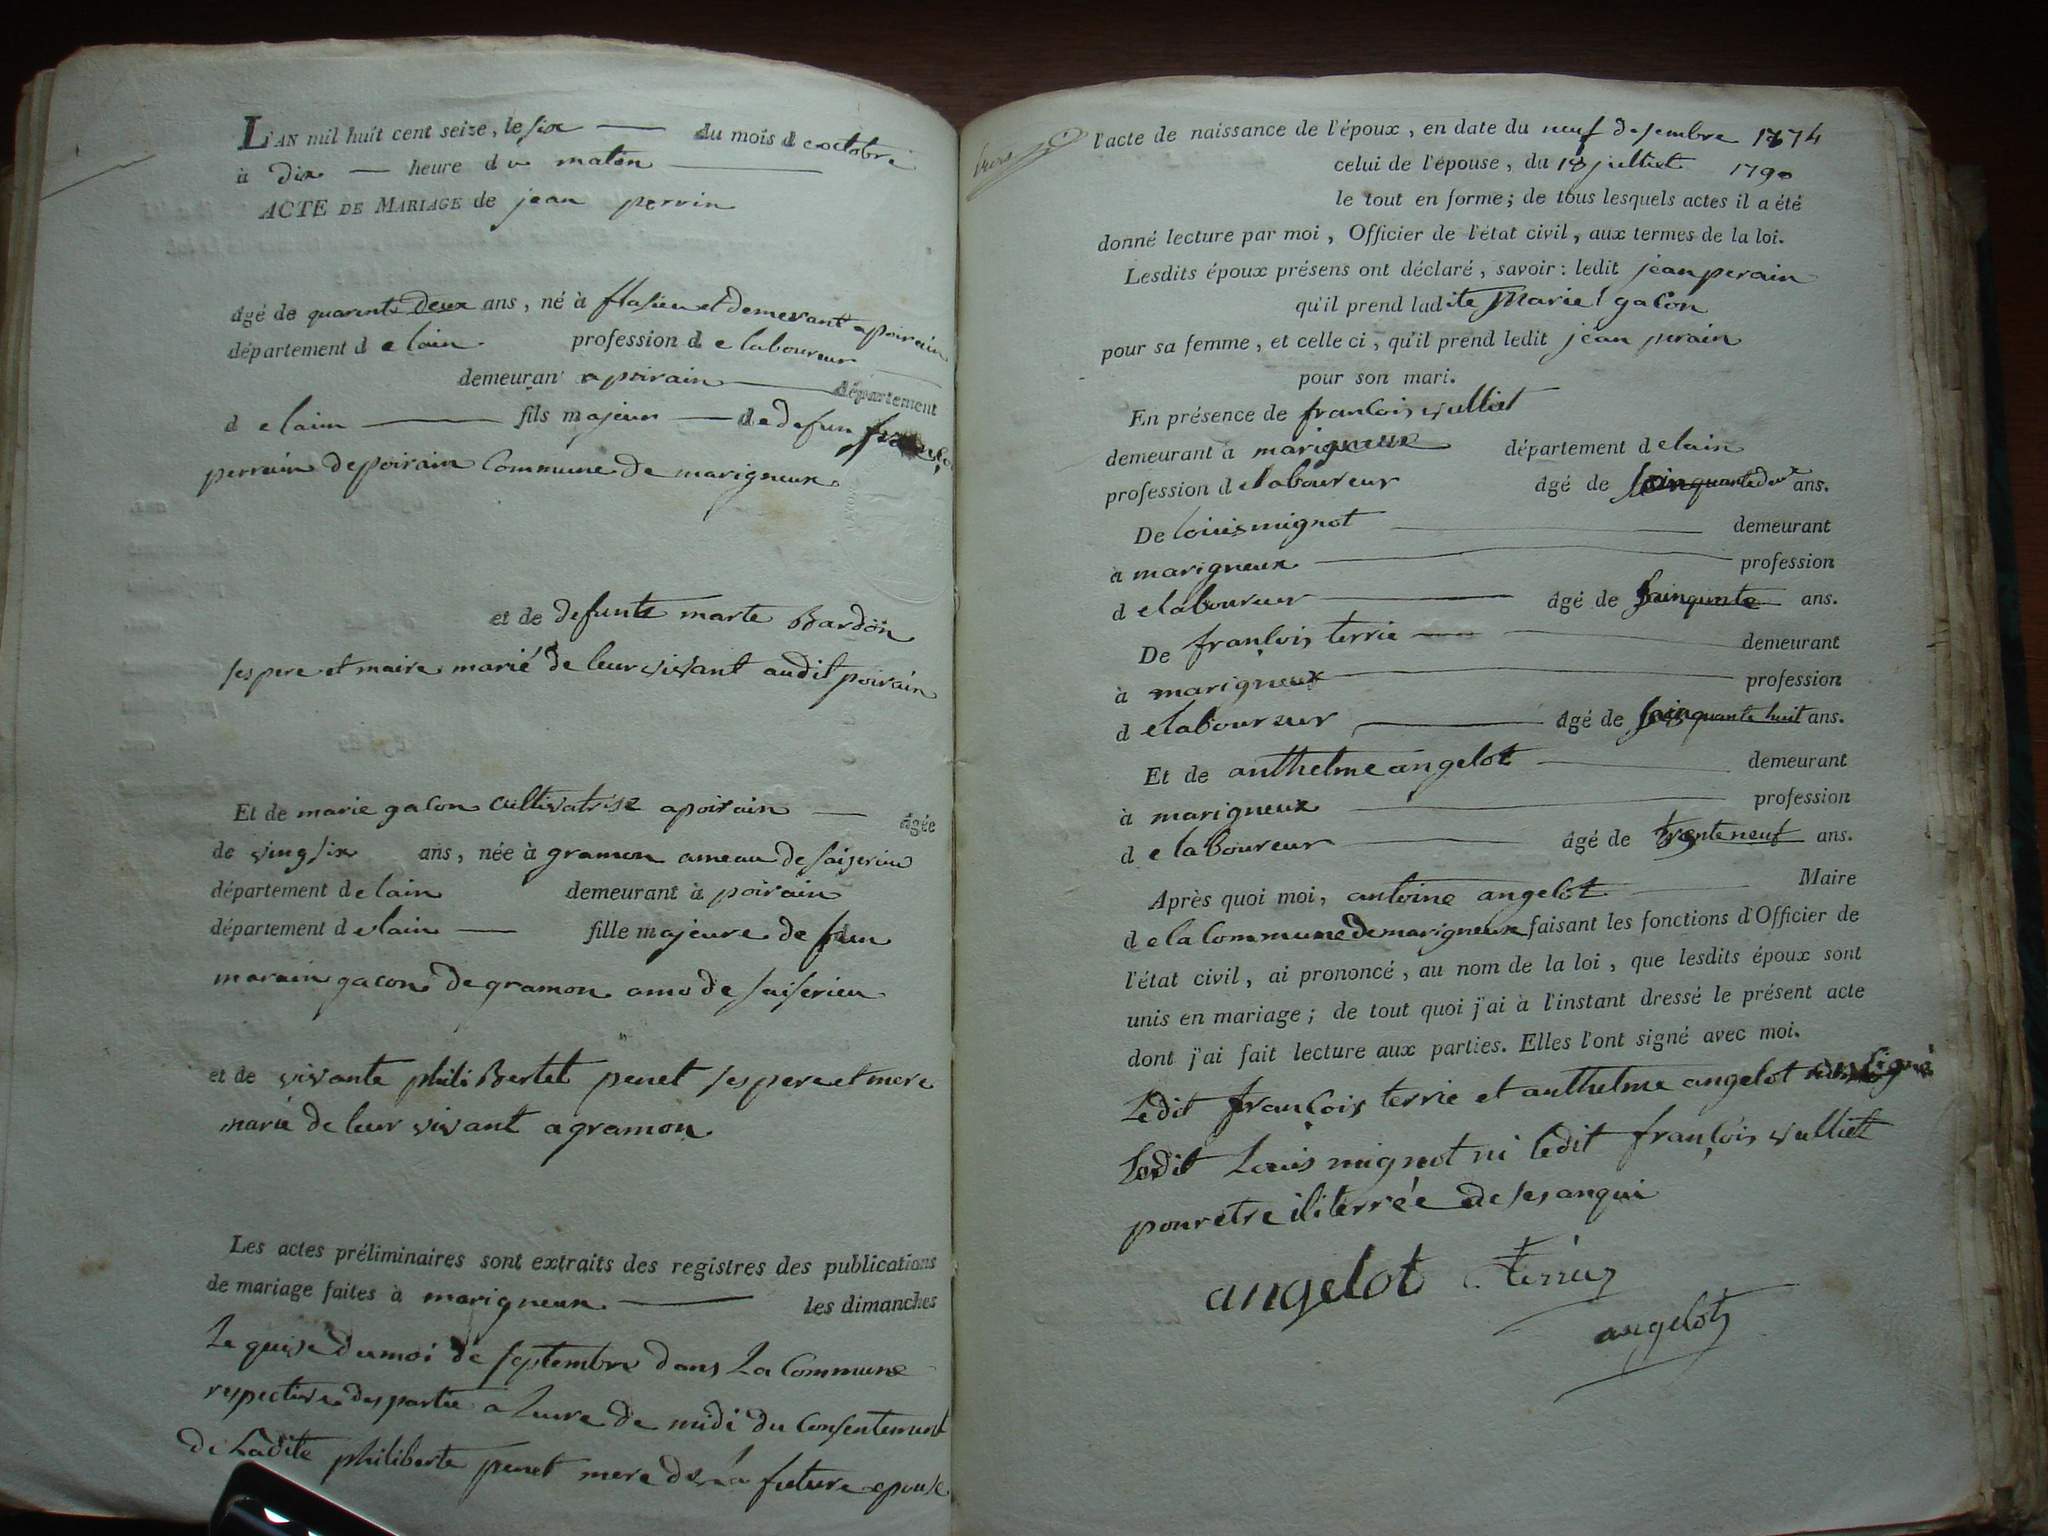 L'AN mil huit cent seize, le six du mois d e octobre
à dix heure d u maten
ACTE DE MARIAGE de jean perrin
âgé de quarente deux ans, né à flasieu et demeurant a poirain
département d e lain profession d e laboureur
demeuran a poirain département
d e laim fils majeur de defun
perrain de poirain Commune de marigneux
et de defunte marte Bardon
ses pere et maire marié de leur vivant audit poirain
Et de marie gacon cultivatrise a poirain âgée
de vingsix ans, née à gramon ameau de saiserieu
département d e lain demeurant à poirain
département d e lain fille majeure de
marain gacon de gramon amo de saiserieu
et de vivante philiBertet penet ses pere et mere
marié de leur vivant a gramon
Les actes préliminaires sont extraits des registres des publications
de mariage faites à marigneux les dimanches
Le quise du moi de septembre dans La Commune
respective des partie a Leure de midi du Consentement
de Ladite philiberte penet mere de la future epouse
l'acte de naissance de l'époux, en date du neuf desembre 1774
celui de l'épouse, du 18 julliet 1790
le tout en forme; de tous lesquels actes il a été
donné lecture par moi, Officier de l'état civil, aux termes de la loi.
Lesdits époux présens ont déclaré, savoir: ledit jean perain
qu'il prend ladite Marie gacon
pour sa femme, et celle ci, qu'il prend ledit jean perain
pour son mari.
En présence de francois vulliet
demeurant à marigneux département d e lain
profession d e laboureur âgé de sainquante deux ans.
De louis mignot demeurant
a marigneux profession
d e laboureur âgé de sainquente ans.
De françois terrie demeurant
à marigneux profession
d e laboureur âgé de sainquante huit ans.
Et de anthelme angelot demeurant
à marigneux profession
d e laboureur âgé de trente neuf ans.
Après quoi moi, antoine angelot Maire
d e la Commune de marigneux faisant les fonctions d'Officier de
l'état civil, ai prononcé, au nom de la loi, que lesdits époux sont
unis en mariage; de tout quoi j'ai à l'instant dressé le présent acte
dont j'ai fait lecture aux parties. Elles l'ont signé avec moi.
Ledit françois terrie et anthelme angelot signé
Ledit Louis mignot ni ledit françois vulliet
pour etre iliterrée de se anqui
angelot terrier
angelot